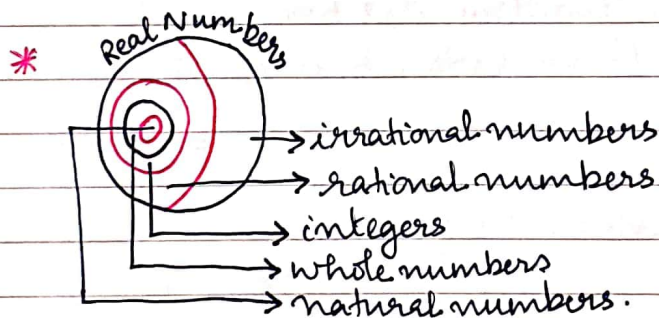 *
Real Numbers
irrational numbers
rational numbers
integers
whole numbers
natural numbers.